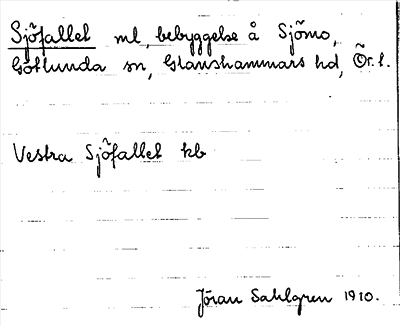 Sjöfallet ml, bebyggelse å Sjömo,
Götlunda sn, Glanshammars hd, Ör. l.
Vestra Sjöfallet kb
Jöran Sahlgren 1910.